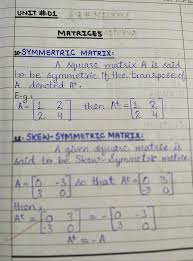 UNIT #01
MATRICES
SYMMERTRIC MATRIX:
A square matrix A is said
to be symmetric if the transpose of
A denoted Aᵗ.
E-g:
A = [1 2 then Aᵗ = [1 2
2 4] 2 4]
SKEW-SYMMETRIC MATRIX:
A given square matrix is
said to be Skew-Symmetric matrix
A = [0 -3 so that Aᵗ = [0 3
3 0] -3 0]
then,
Aᵗ = [0 3 = - [0 -3
-3 0] 3 0]
Aᵗ = -A